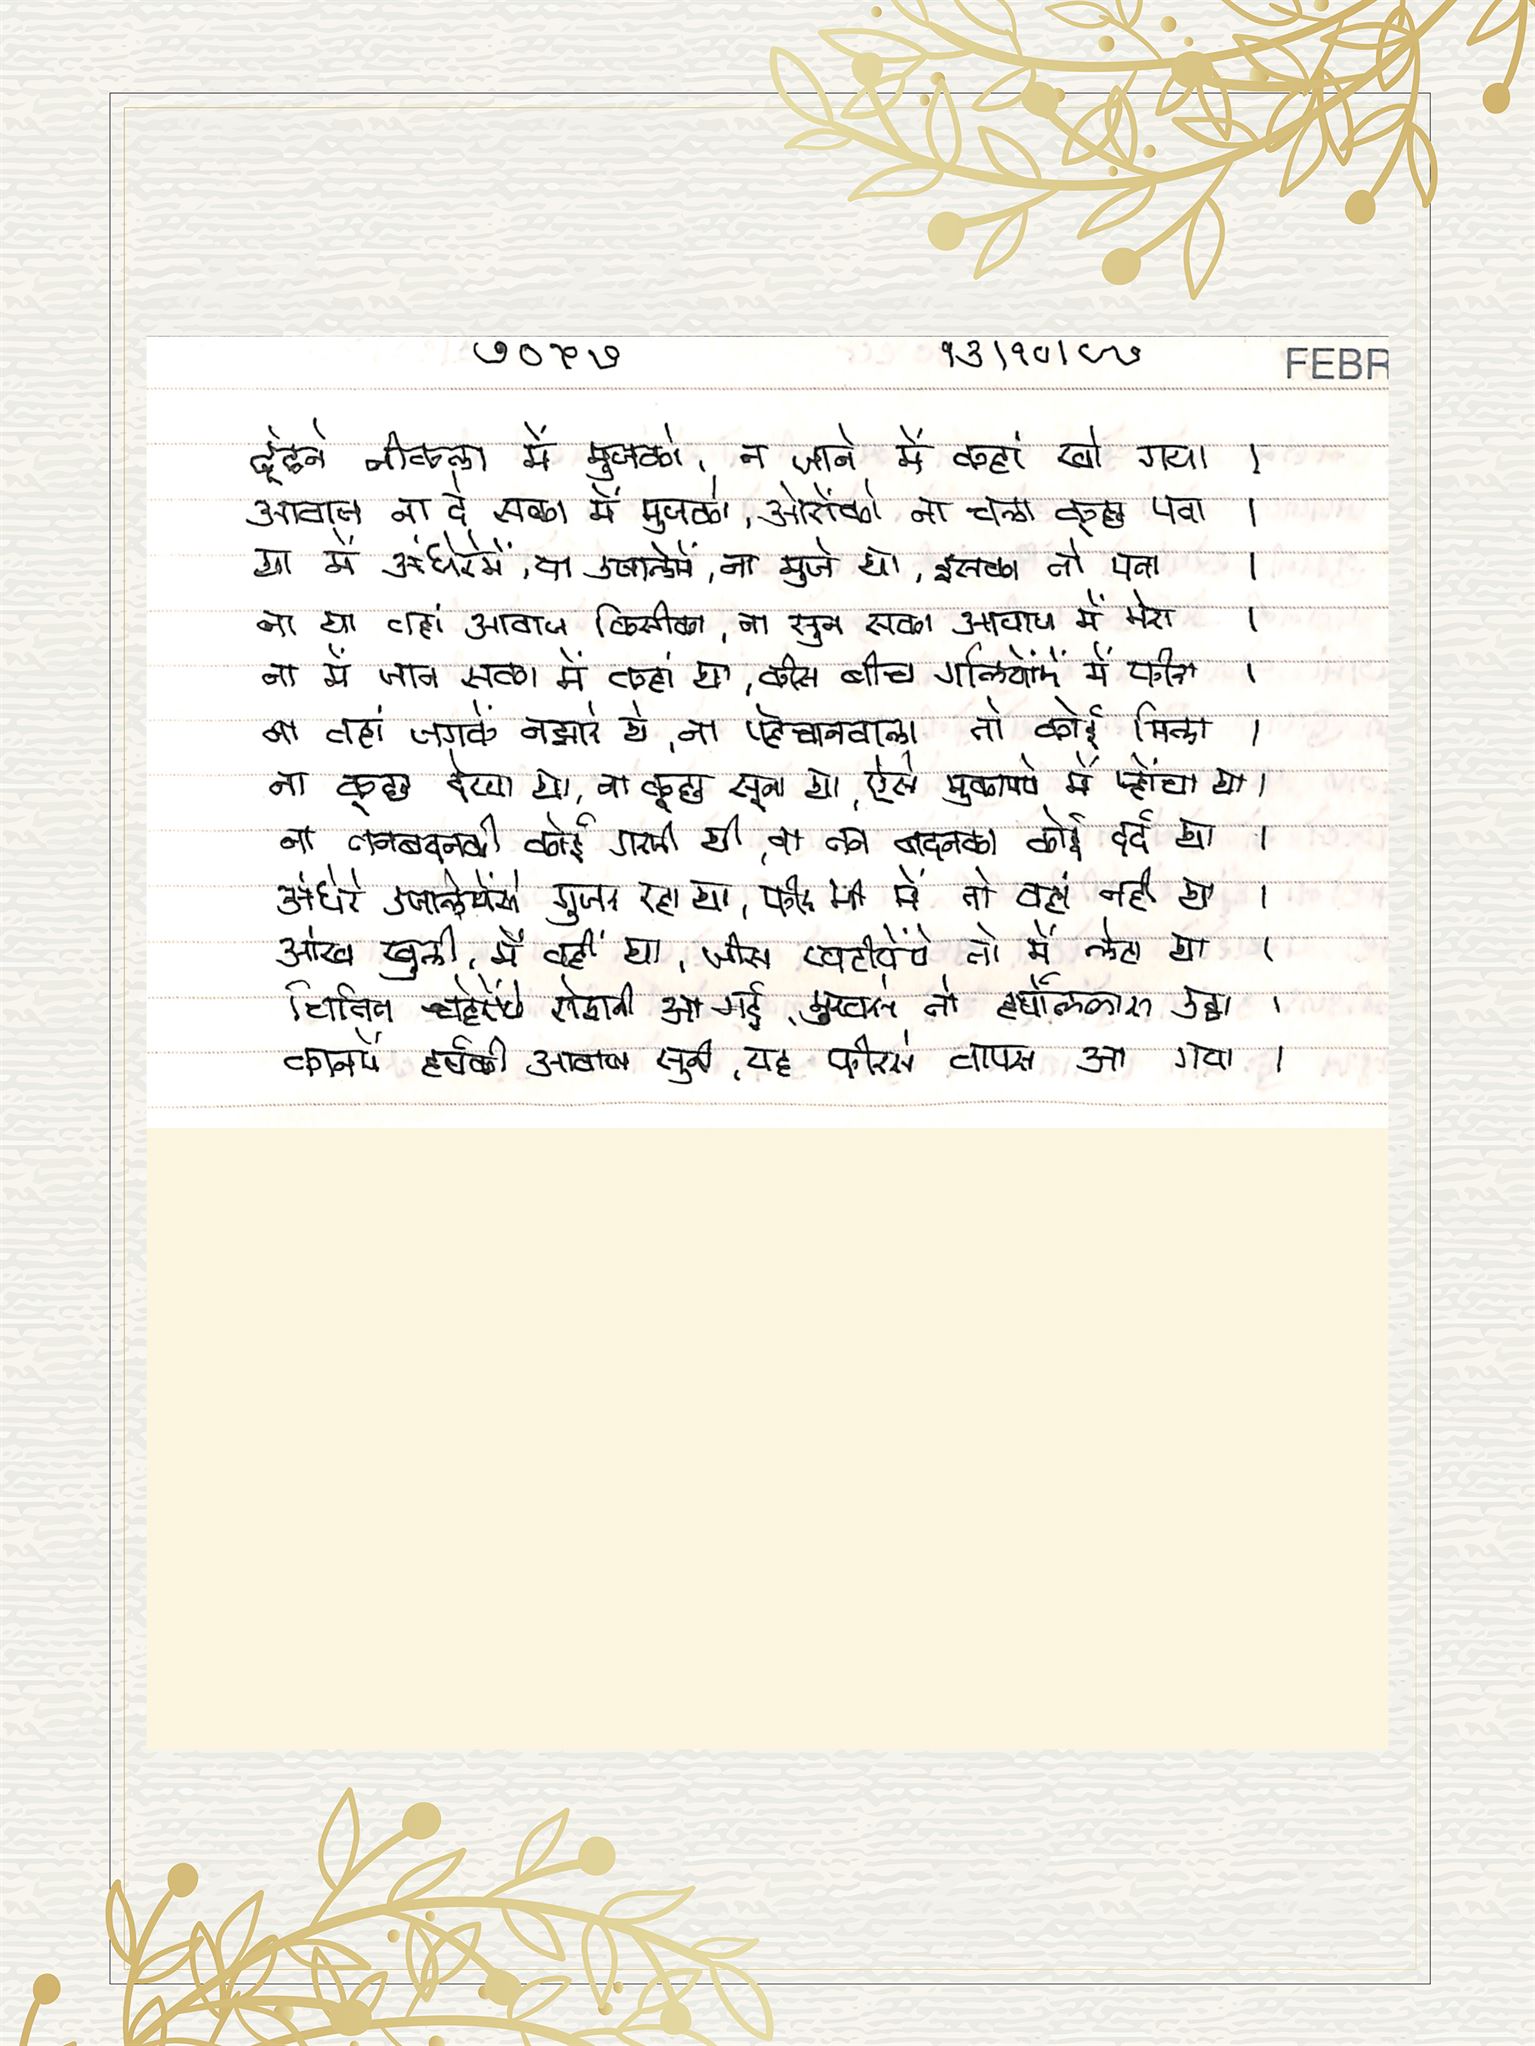 ७०५७ १३/१०/८७ FEBR
ढूंढने नीकला में मुजको, न जाने में कहां खो गया ।
आवाज ना दे सका में मुजको, ओरोंको ना चला कूछ पता ।
था में अंधेरेमें, या उजालेमें, ना मुजे था, इसका तो पता ।
ना था वहां आवाज किसीका, ना सुन सका आवाज में मेरा ।
ना में जान सका में कहां था, कीस बीच गलियोंमें में फीरा ।
ना वहां जगके नझारे थे, ना पहेचानवाला तो कोई मिला ।
ना कूछ देखा था, ना कूछ सूना था, ऐसे मुकामपे में प्होंचा था ।
ना तनबदनकी कोई गरमी थी, ना तन बदनका कोई दर्द था ।
अंधेरे उजालेमेंसे गुजर रहा था, फीर भी में तो वहां नही था ।
आंख खुली, में वहीं था, जीस स्थितीमें तो में लेटा था ।
चिंतित चहेरेपे रोशनी आ गई, मुखसे तो हर्षोल्लास उठा ।
कानमें हर्षकी आवाज सुनी, यह फीरसे वापस आ गया ।